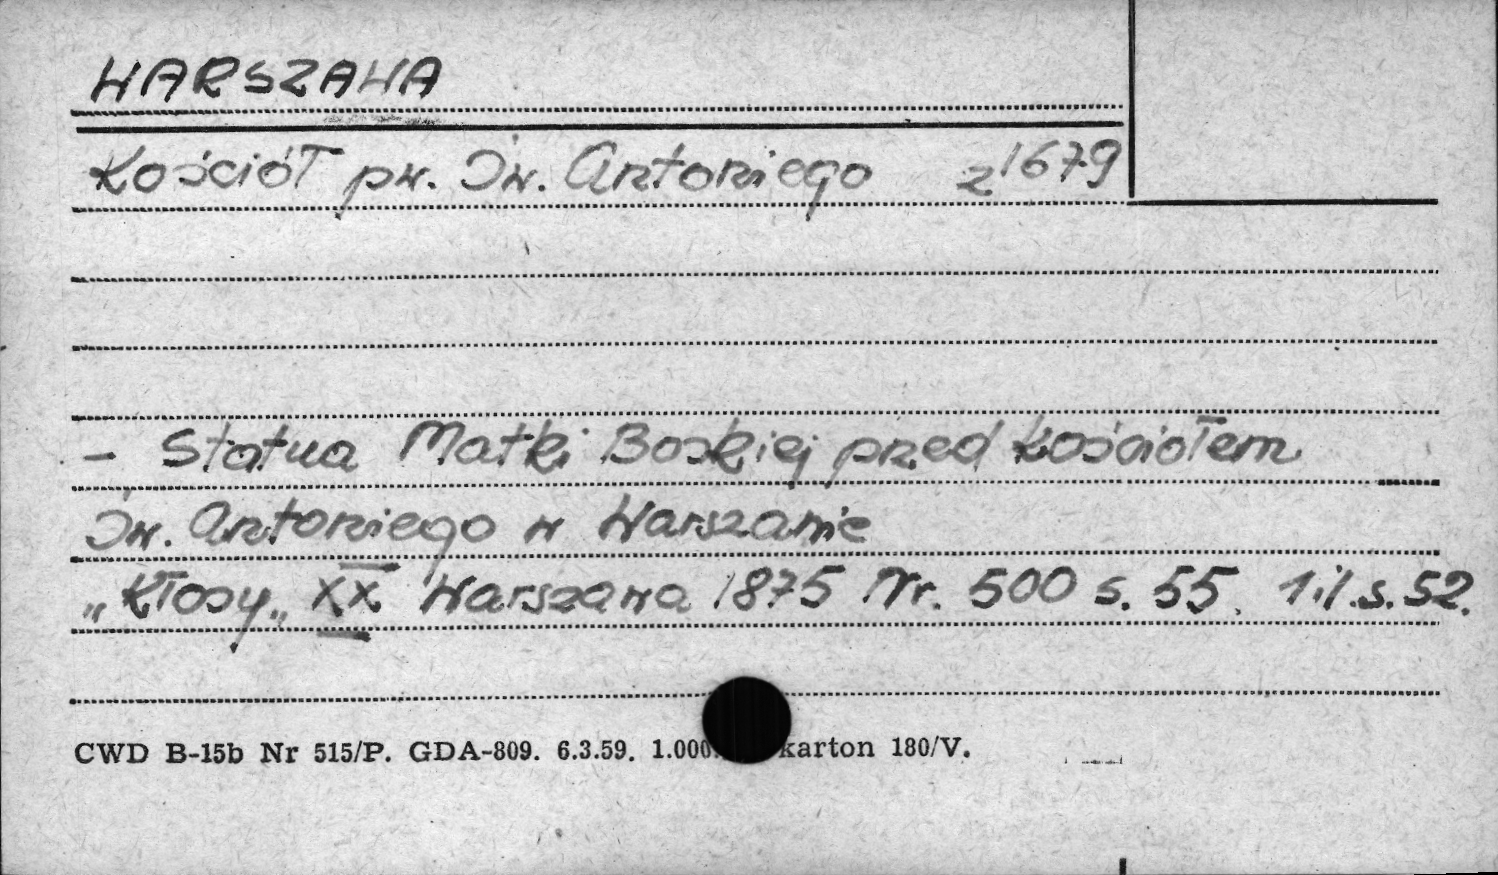 WARSZAWA
Kościół pw. Św. Antoniego z 1679
- Statua Matki Boskiej przed kościołem
Św. Antoniego w Warszawie
„Kłosy„ XX Warszawa 1875 Nr. 500 s. 55. 1 il. s. 52.
CWD B-15b Nr 515/P. GDA-809. 6.3.59. 1.000. karton 180/V.